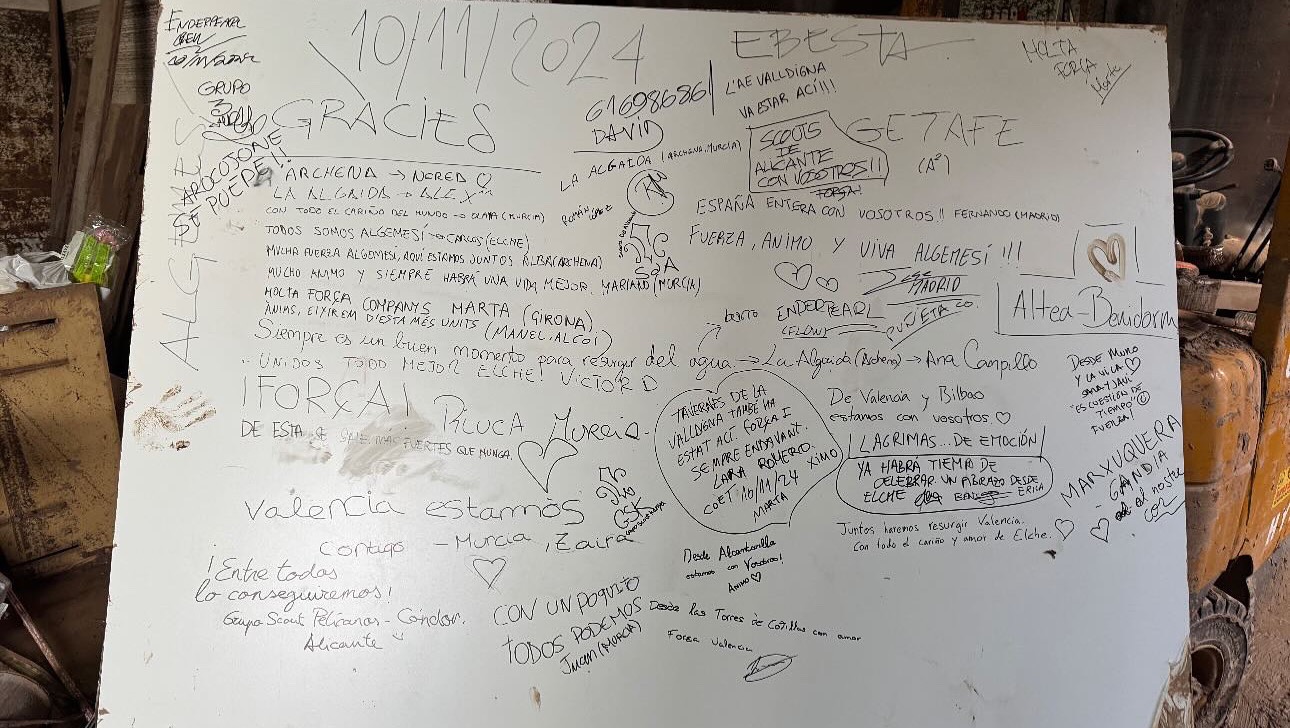 10/11/2024
EBESTA
MOLTA
FORÇA
GRUPO
3
GRACIES
ALGEMES
AROCOJONE
SE PUEPE!!
61698686
DAVID
L'AE VALLDIGNA
VA ESTAR ACÍ!!!
SCOUTS
DE
ALICANTE
CON VOSOTROS!!!
FORÇA!
GETAFE
(Aº)
ARCHENA → NEREO ♡
LA ALGAIDA → ALEX
LA ALGAIDA (ARCHENA, MURCIA)
CON TODO EL CARIÑO DEL MUNDO → OLAYA (MURCIA)
ROMÁN
TODOS SOMOS ALGEMESÍ → CARLOS (ELCHE)
MUCHA FUERZA ALGEMESÍ, AQUÍ ESTAMOS JUNTOS ALBA (ARCHENA)
MUCHO ANIMO Y SIEMPRE HABRÁ UNA VIDA MEJOR. MARIANO (MURCIA)
SGA
ESPAÑA ENTERA CON VOSOTROS!! FERNANDO (MADRID)
FUERZA, ANIMO Y VIVA ALGEMESÍ!!!
JOSE
MADRID
MOLTA FORÇA COMPANYS MARTA (GIRONA)
ANIMS, EIXIREM D'ESTA MÉS UNITS (MANEL, ALCOI)
ENDERPEARL
(FLOW)
Altea-Benidorm
Siempre es un buen momento para resurgir del agua → La Algaida (Archena) → Ana Campillo
UNIDOS TODO MEJOR ELCHE! VICTOR D
¡FORÇA!
PILUCA Murcia
DE ESTA SE SALE MAS FUERTES QUE NUNCA.
TAVERNES DE LA
VALLDIGNA TAMBÉ HA
ESTAT ACÍ. FORÇA I
SEMPRE ENDAVANT.
LARA ROMERO
COET 10/11/24 XIMO
MARTA
De Valencia y Bilbao
estamos con vosotros ♡
LAGRIMAS... DE EMOCIÓN
YA HABRÁ TIEMPO DE
CELEBRAR UN ABRAZO DESDE
ELCHE
ERICA
DESDE MURO
Y LA VILA ♡
SARA Y JAVI
"ES CUESTIÓN DE
TIEMPO"
FUERZA!
MARXUQUERA
- GANDIA
al nostre
cor
Juntos haremos resurgir Valencia.
Con todo el cariño y amor de Elche. ♡
GSK
Valencia estamos
Contigo - Murcia, Zaira
♡
Desde Alcantarilla
estamos con Vosotros!
Animo ♡
¡Entre todas
lo conseguiremos!
Grupo Scout Pelicanos - Cóndor.
Alicante
CON UN POQUITO
TODOS PODEMOS
Juan (MURCIA)
Desde las Torres de Cotillas con amor
Força Valencia